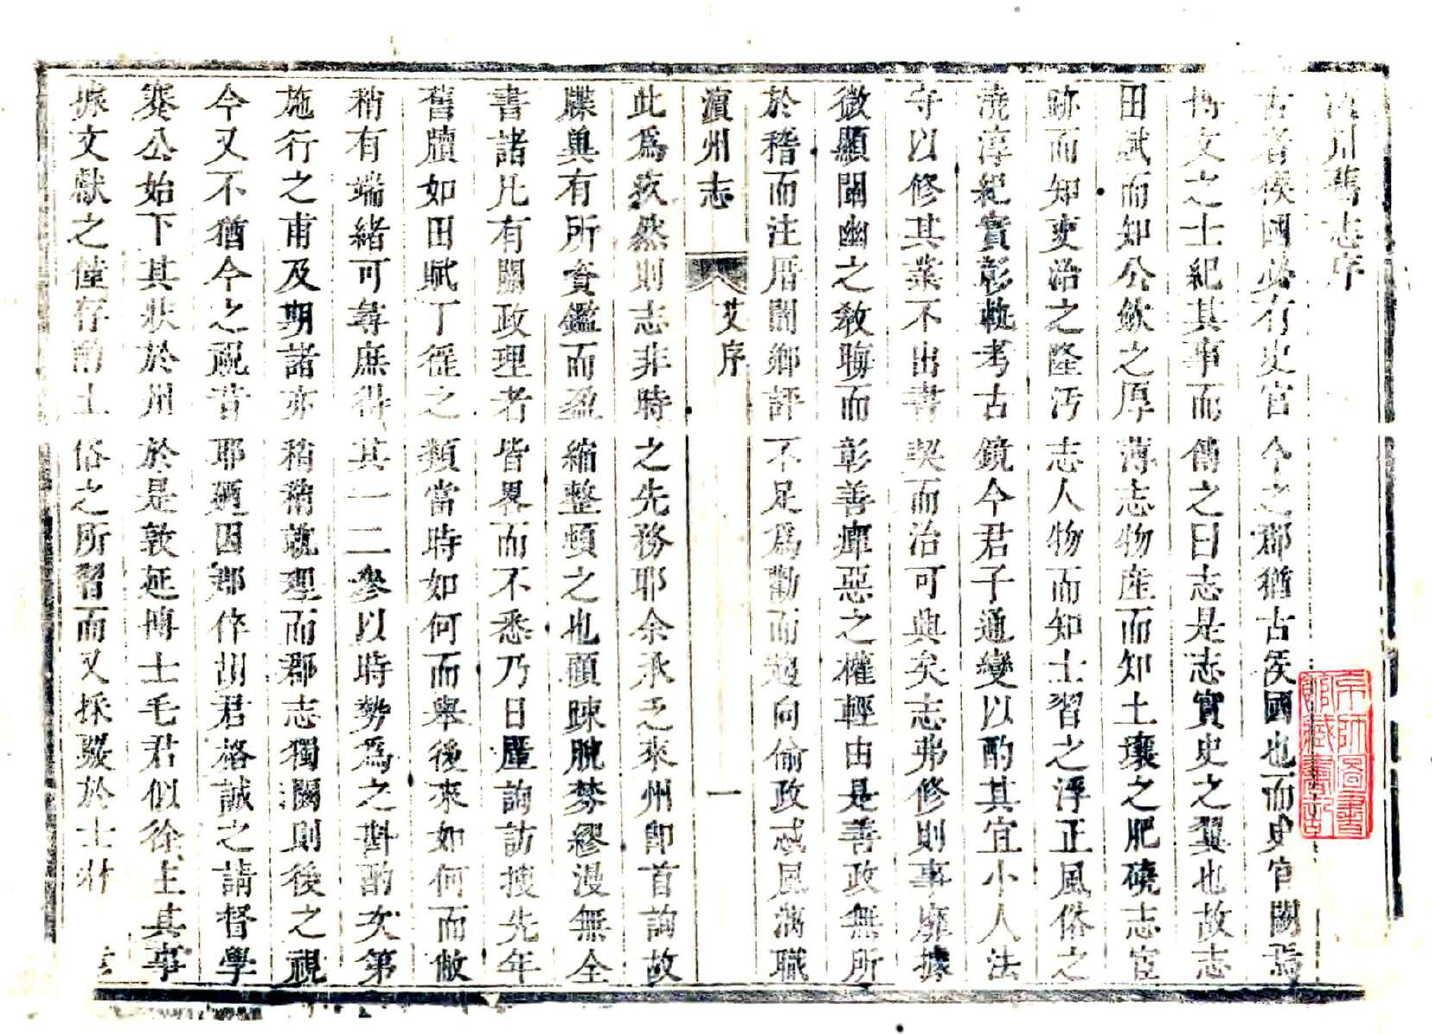 濱州舊志序
古者侯國必有史官今之郡猶古侯國也而史官闕焉
文之士紀其事而傳之曰志是志實史之翼也故志
田賦而知公斂之厚薄志物産而知土壤之肥磽志宦
跡而知吏治之隆污志人物而知士習之浮正風俗之
澆淳紀實彰軌考古鏡今君子通變以酌其宜小人法
守以修其業不出書契而治可典矣志弗修則事靡據
微顯闡幽之敎晦而彰善癉惡之權輕由是善政無所
於稽而注厝闇鄉評不足爲勸而趨向偷政忒風漓職
濱州志
艾序
一
此爲疚然則志非時之先務耶余承乏來州卽首詢故
牒與有所資鑑而盈縮整頓之也頋踈脫棼繆漫無全
書諸凡有關政理者皆畧而不悉乃日廑詢訪摉先年
舊牘如田賦丁徭之類當時如何而舉後來如何而敝
稍有端緒可尋庶得其一二參以時勢爲之斟酌次第
施行之甫及期諸亦稍稍就理而郡志獨闕則後之視
今又不猶今之視昔耶廼因郡倅胡君格誠之請督學
蹇公始下其狀於州於是敦延博士毛君似徐主其事
據文獻之僅存酌土俗之所習而又採敠於士